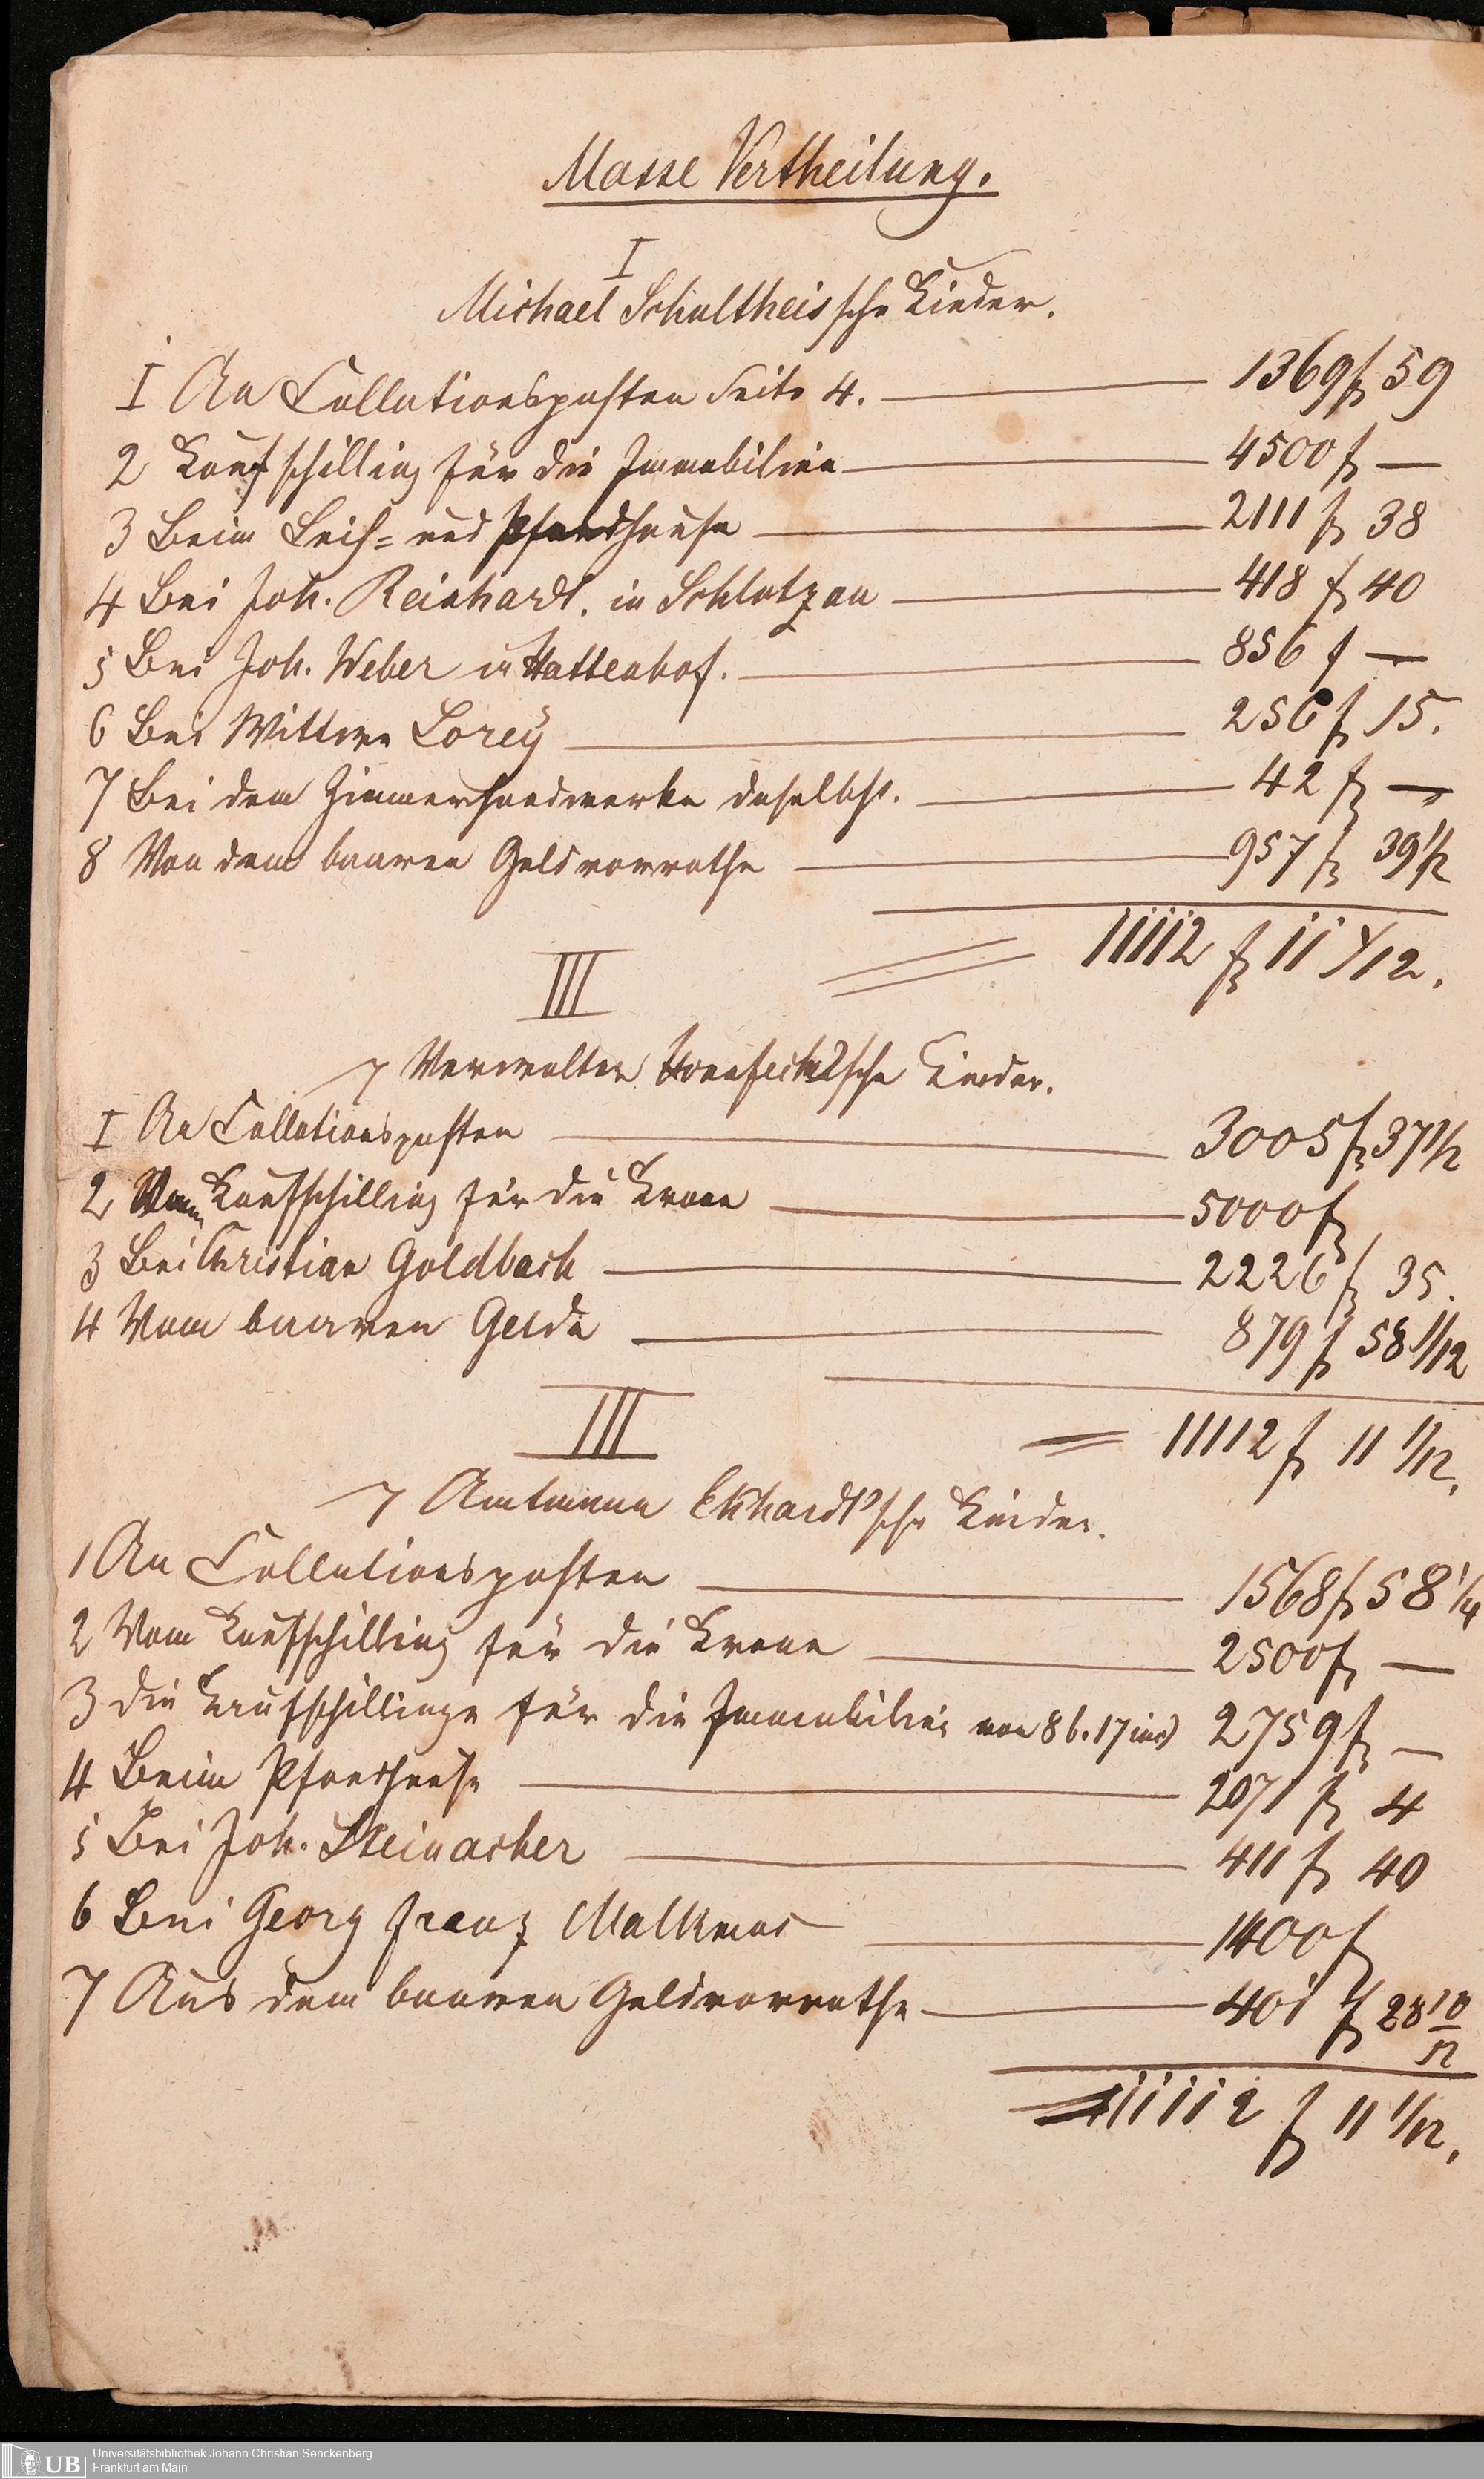 Masse Vertheilung.
I
Michael Schultheissche Kinder.
I An Collationsposten Seite 4. 1369 f 59
2 Kaufschilling für die Immobilien 4500 f —
3 Beim Leih= und Pfandhause 2111 f 38
4 Bei Joh. Reinhardt. in Schlotzau 418 f 40
5 Bei Joh. Weber in Hattenhof. 856 f —
6 Bei Wittwe Lorey 256 f 15.
7 Bei dem Zimmerhandwerke daselbst. 42 f —
8 Von dem baaren Geldvorrathe 957 f 39 1/2
= 11112 f 11 1/12.
III
Verwalter Kinder.
I An Collationsposten 3005 f 37 1/2
2 Vom Kaufschilling für die Krone 5000 f
3 Bei Christian Goldbach 2226 f 35.
4 Vom baaren Gelde 879 f 58 1/12
= 11112 f 11 1/12.
III
Amtmann Ekhardt'sche Kinder.
1 An Collationsposten 1568 f 58 1/4
2 Vom Kaufschilling für die Krone 2500 f —
3 Die Kaufschillinge für die Immobilien von 8 b. 17 incl 2759 f —
4 Beim Pfandhause 2071 f 4
5 Bei Joh. Steinacker 411 f 40
6 Bei Georg Franz Malkmus 1400 f
7 Aus dem baaren Geldvorrathe 401 f 28 10/12
= 11112 f 11 1/12.
UB
Universitätsbibliothek Johann Christian Senckenberg
Frankfurt am Main